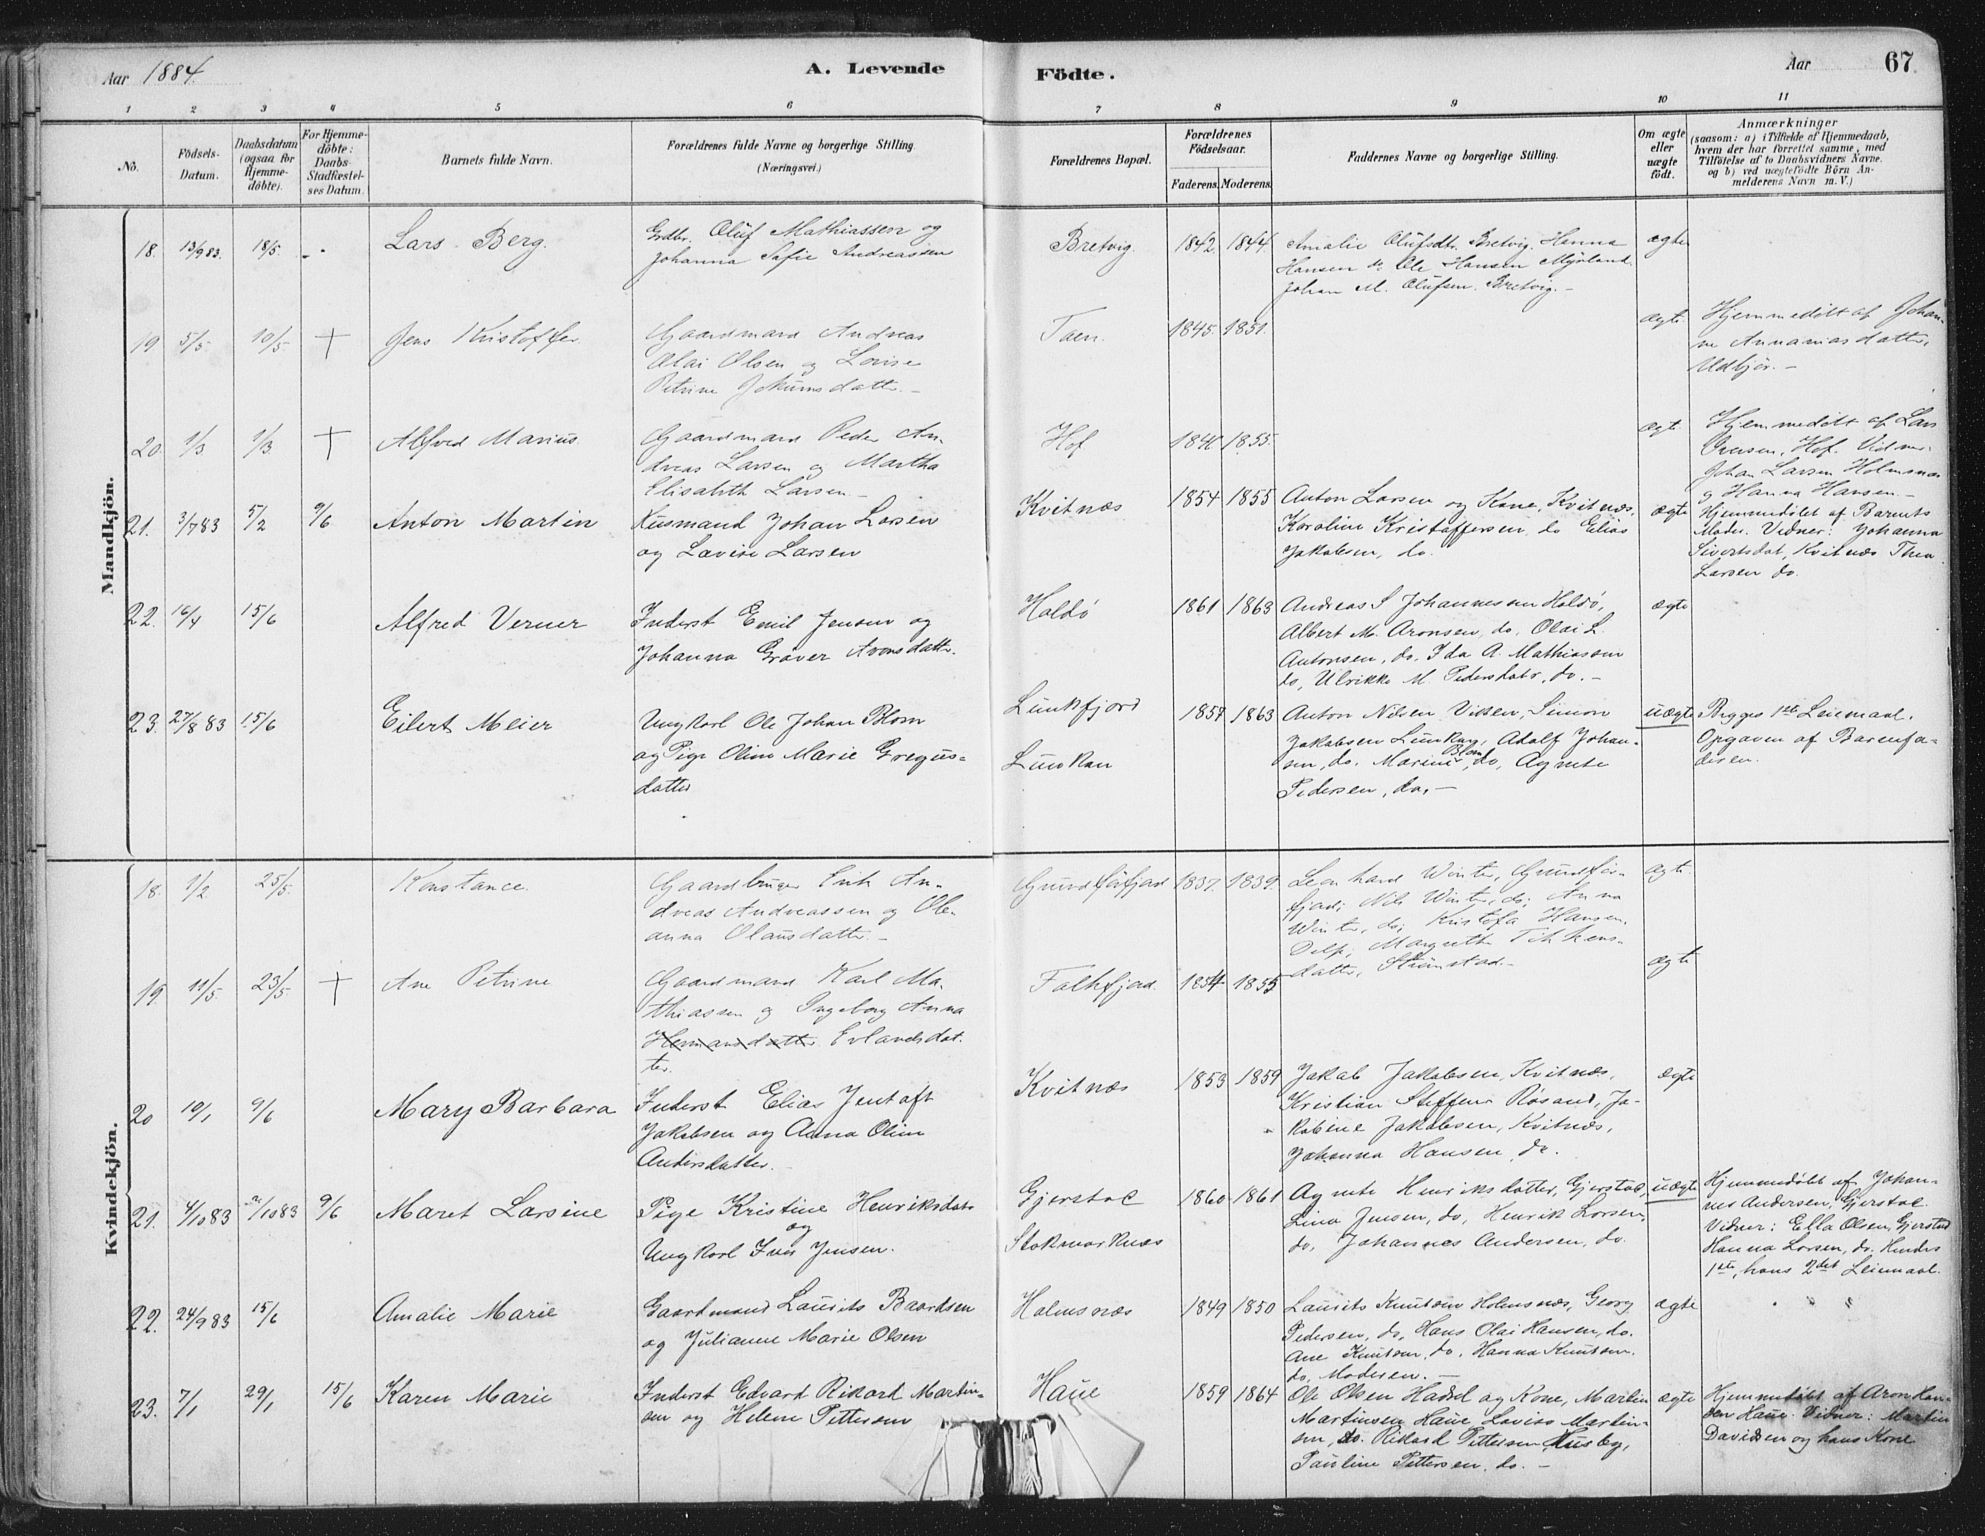 Aar 1884. A. Levende Födte. Aar 67.
1 2 3 4 5 6 7 8 9 10 11
No. Födsels-Datum. Daabsdatum (ogsaa for Hjemmedöbte). For Hjemmedöbte: Daabs-Stadfæstelses Datum. Barnets fulde Navn. Forældrenes fulde Navne og borgerlige Stilling. (Næringsvei.) Forældrenes Bopæl. Forældrenes Födselsaar. Faderens. Moderens. Faddernes Navne og borgerlige Stilling. Om ægte eller uægte födt. Anmærkninger (saasom: a) i Tilfælde af Hjemmedaab, hvem der har forrettet samme, med Tilföielse af to Daabsvidners Navne. og b) ved uægtefödte Börn Anmelderens Navn m. V.)
Mandkjön.
18. 13/9 83. 18/5. -. Lars Berg. Grdbr. Oluf Mathiassen og
Johanna Sofie Andreassen
Bretvig. 1842. 1844. Amalie Olufsdtr. Bretvig. Hanna
Hansen do Ole Hansen Myrland.
Johan M. Olufsen. Bretvig.-
ægte
19 5/5 10/5. + Jens Kristoffer Gaardmand Andreas
Olai Olsen og Lovise
Petrine Jokumsdatter.-
Taen. 1845. 1851. ægte Hjemmedöbt af Johan-
ne Annaniasdatter,
Uldbjør.-
20. 1/3 1/3. + Alfred Marius. Gaardmand Peder An-
dreas Larsen og Martha
Elisabeth Larsen.-
Hof 1855. ægte Hjemmedöbt af Lars
Hof. Vidner:
Johan Larsen Holmsnæs
og Hanna Hansen.-
21. 3/7 83 5/2 9/6 Anton Martin Husmand Johan Larsen
og Lovise Larsen
Kvitnæs 1854 1855 Anton Larsen og Kone, Kvitnæs,
Karoline Kristoffersen, do Elias
Jakobsen, do.
ægte Hjemmedøbt af Barnets
Moder. Vidner: Johanna
Sivertsdat, Kvitnæs Thea
Larsen do.
22. 16/4 15/6 Alfred Verner Inderst Emil Jensen og
Johanna Grøver Aronsdatter.
Haldø 1861 1863 Andreas S Johannessen Haldø,
Albert M. Aronsen, do, Olai L.
Antonsen, do, Ida A. Mathiassen
do, Ulrikke M. Pedersdatr, do.-
ægte
23. 27/8 83 15/6 Eilert Meier Ungkarl Ole Johan Blom
og Pige Oline Marie Gregus-
datter
Lunkfjord
Lunkan
1857 1863 Anton Nilsen Simon
Jakobsen Lunkan, Adolf Johan-
sen, do. Marine Blom, do, Agnete
Pedersen, do.-
uægte Begges 1ste Leiemaal.
Opgaven af Barnefa-
deren.
Kvindekjön.
18. 1/2 25/5. Konstance. Gaardbruger Erik An-
dreas Andreassen og Ole-
anna Olausdatter.-
Grundförfjord 1837. 1839. Leonhard Winter, Grundför-
fjord; Nils Winter, do; Anna
Winter, do; Kristofa Hansen,
Delp; Margrethe
datter, Strømstad.-
ægte.
19. 11/5 23/5 + Ane Petrine Gaardmand Karl Ma-
thiassen og Ingeborg Anna
Hemansdatter Erlandsdat-
ter.
Falkfjord. 1854 1855 ægte
20 10/1 9/6 Mary Barbara Inderst Elias Jentoft
Jakobsen og Anna Oline
Andersdatter.-
Kvitnæs 1853 1859 Jakob Jakobsen, Kvitnæs,
Kristian Steffens Røsand, Ja-
kobine Jakobsen, Kvitnæs,
Johanna Hansen, do.
ægte
21. 4/10 83 21/10 83 9/6 Maret Larsine Pige Kristine Henriksdatr
og
Ungkarl Iver Jensen.
Gjerstad
Stokmarknæs
1860 1861 Agnete Henriksdatter, Gjerstad,
Lina Jensen, do, Henrik Larsen,
do, Johannes Andersen, do.
uægte Hjemmedøbt af Johan-
nes Andersen, Gjerstad.
Vidner: Ella Olsen, Gjerstad
Hanna Larsen, do. Hendes
1ste, hans 2det Leiemaal.
22. 24/9 83 15/6 Amalie Marie Gaardmand Laurits Baardsen
og Julianne Marie Olsen
Holmsnæs 1849 1850 Laurits Knutsen Holmsnæs, Georg
Pedersen, do, Hans Olai Hansen, do.
Ane Knutsen, do, Hanna Knutsen.
do, Moderen.-
ægte
23. 7/1 29/1 15/6 Karen Marie Inderst Edvard Rikard Martin-
sen og Helene Pettersen
Haue 1859 1864 Ole Olsen Hadsel og Kone, Martin
Martinsen Haue Lovise Martin-
sen, do. Rikard Pettersen Husby,
Pauline Pettersen, do.-
ægte Hjemmedøbt af Aron Han-
sen Haue. Vidner: Martin
Davidsen og hans Kone